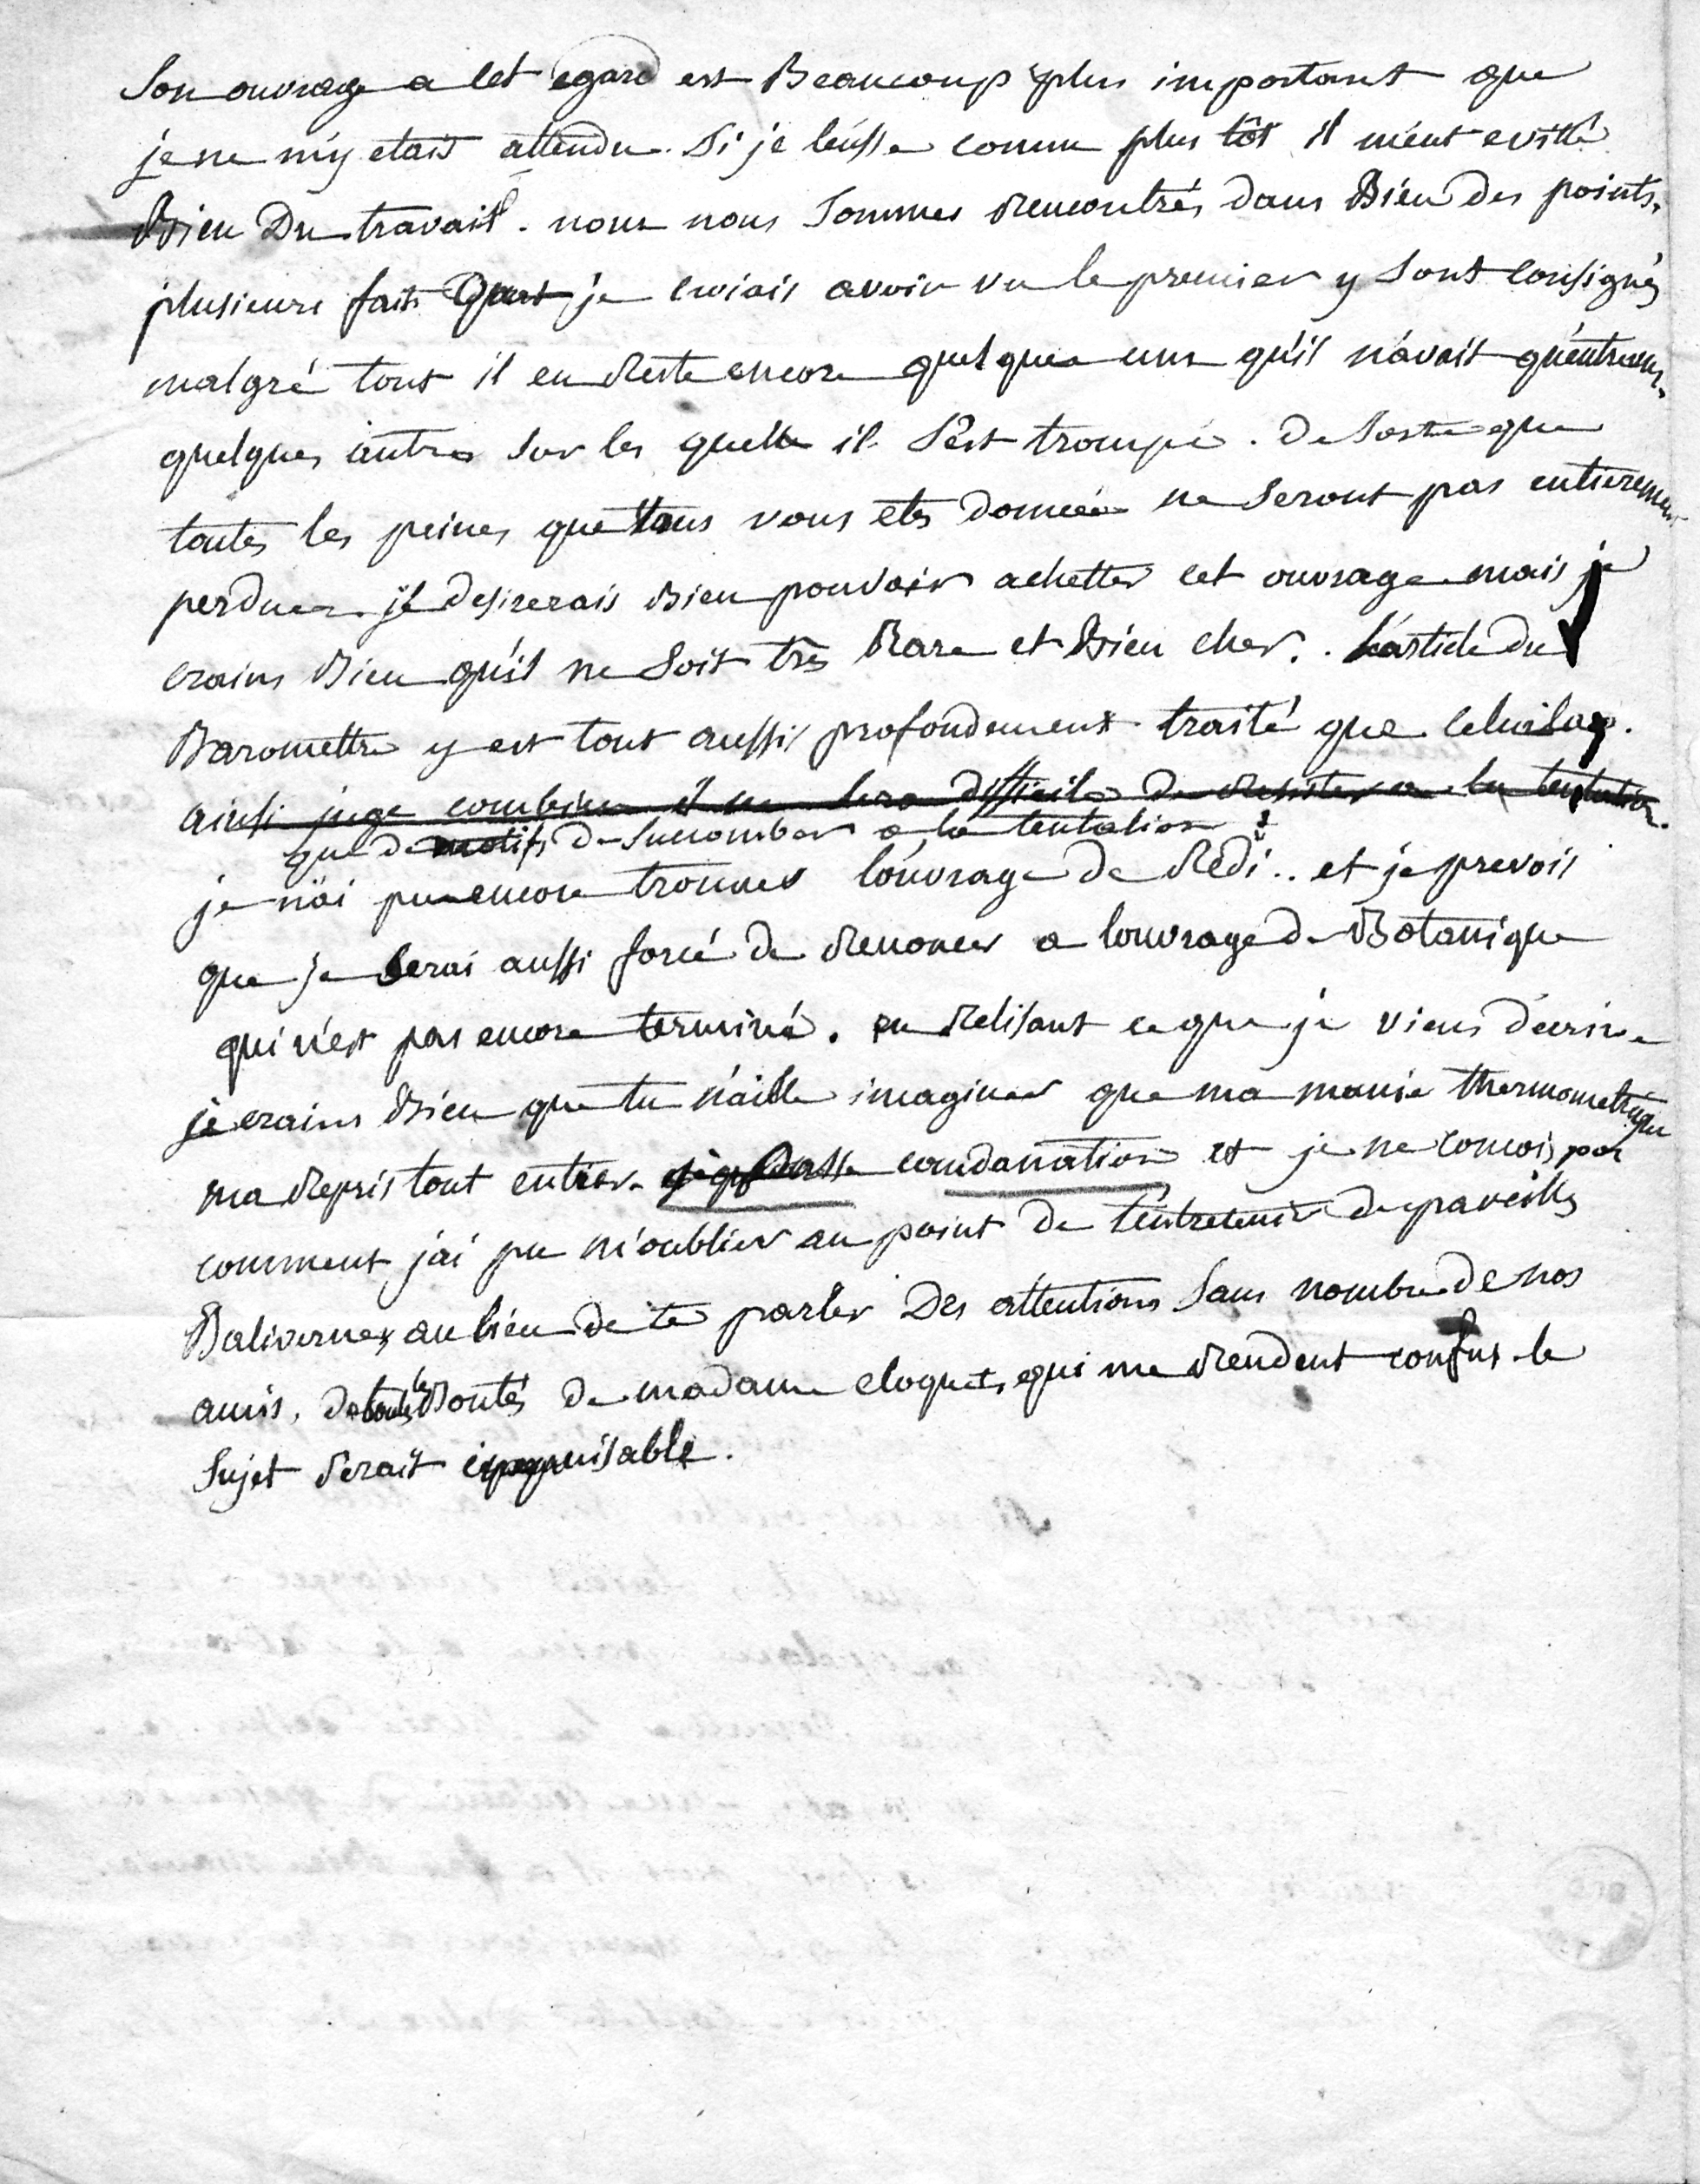 Son ouvrage a cet egard est Beaucoup plus important que
je ne m'y etais attendu. Si je l'eusse connu plus tôt il m'eut evité
Bien Du travail. nous nous sommes Rencontrés dans Bien des points.
plusieurs faits que je croiais avoir vu le premier y sont consignés
malgré tout il en Reste encore quelques uns qu'il n'avait qu'entrevus.
quelques autres sur les quelles il s'est trompé. de sorte que
toutes les peines que vous vous etes données ne seront pas entierement
perdues. je desirerais Bien pouvoir achetter cet ouvrage mais je
crains Bien qu'il ne soit très Rare et Bien cher. l'article du
Baromettre y est tout aussi profondement traité que celui la.
ainsi juge combien il me sera difficile de Resister a la tentation.
que de motifs de succomber a la tentation!
je n'ai pu encore trouver l'ouvrage de Redi.. et je prevois
que je serai aussi forcé de Renoncer a l'ouvrage de Botanique
qui n'est pas encore terminé. en Relisant ce que je viens d'ecrire
je crains Bien que tu n'aille imaginer que ma manie thermometrique
ma Repris tout entier. je passe condanation et je ne concois pas
comment j'ai pu m'oublier au point de t'entretenir de pareilles
Balivernes, au lieu de te parler Des attentions sans nombre de nos
amis, de toutes les Bontés de madame cloquet, qui me Rendent confus. le
sujet serait inepuisable.